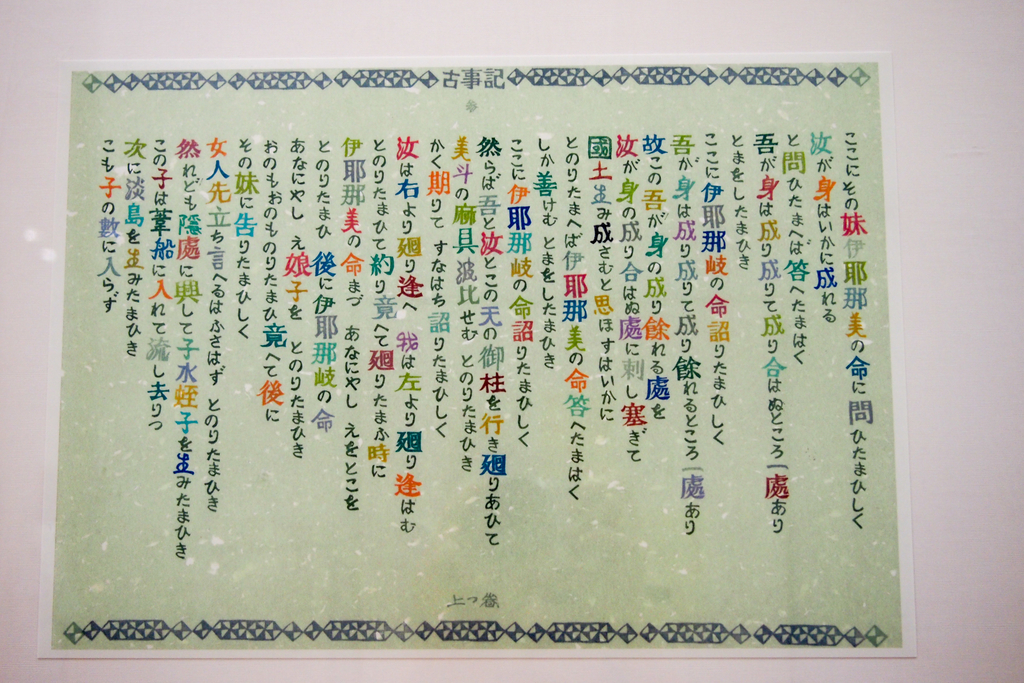 古事記
ここにその妹伊耶那美の命に問ひたまひしく
汝が身はいかに成れる
と問ひたまへば答へたまはく
吾が身は成り成りて成り合はぬところ一處あり
とまをしたまひき
ここに伊耶那岐の命詔りたまひしく
吾が身は成り成りて成り餘れるところ一處あり
故この吾が身の成り餘れる處を
汝が身の成り合はぬ處に刺し塞ぎて
國土生み成さむと思ほすはいかに
とのりたまへば伊耶那美の命答へたまはく
しか善けむとまをしたまひき
ここに伊耶那岐の命詔りたまひしく
然らば吾と汝とこの天の御柱を行き廻りあひて
美斗の麻具波比せむとのりたまひき
かく期りてすなはち詔りたまひしく
汝は右より廻り逢へ 我は左より廻り逢はむ
とのりたまひて約り竟へて廻りたまふ時に
伊耶那美の命まづ あなにやし えをとこを
とのりたまひ 後に伊耶那岐の命
あなにやし え娘子を とのりたまひき
おのもおのものりたまひ竟へて後に
その妹に告りたまひしく
女人先立ち言へるはふさはず とのりたまひき
然れども隱處に興して子水蛭子を生みたまひき
この子は葦船に入れて流し去りつ
次に淡島を生みたまひき
こも子の數に入らず
上つ卷